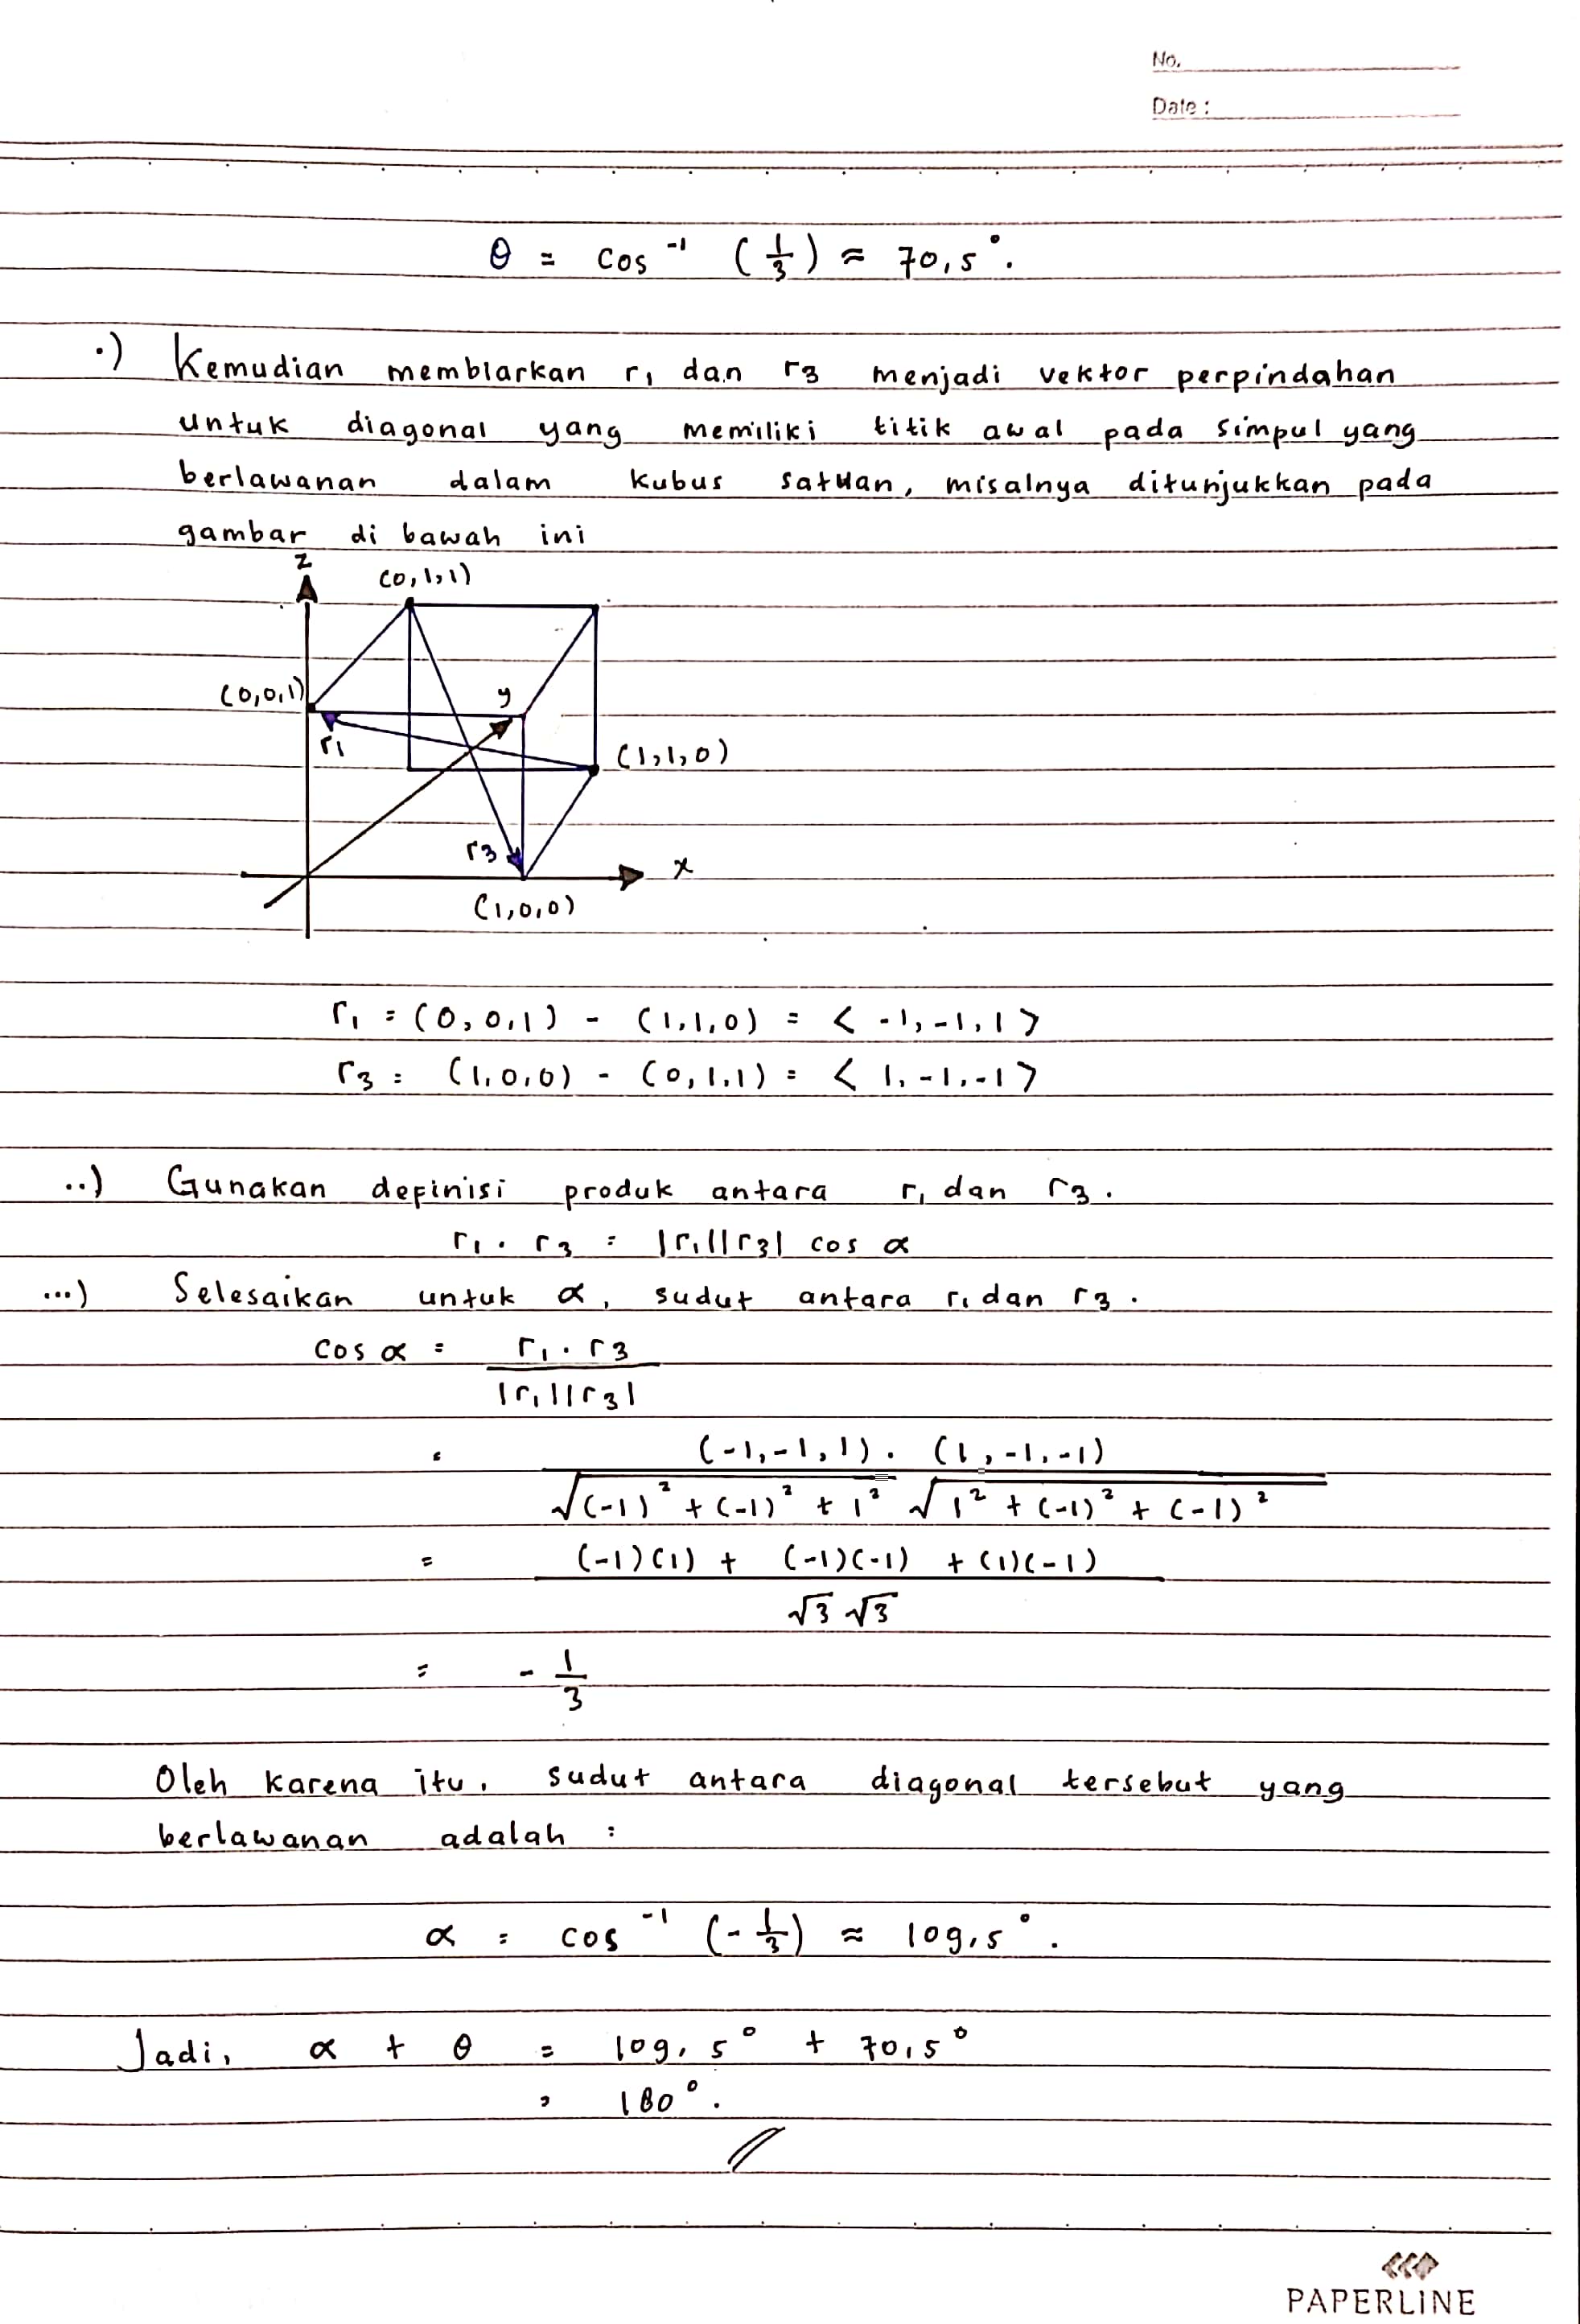 No.
Date :
θ = cos⁻¹ (1/3) ≈ 70,5°.
.) Kemudian membiarkan r₁ dan r₃ menjadi vektor perpindahan
untuk diagonal yang memiliki titik awal pada simpul yang
berlawanan dalam kubus satuan, misalnya ditunjukkan pada
gambar di bawah ini
z
(0,1,1)
(0,0,1)
y
r₁
(1,1,0)
r₃
x
(1,0,0)
r₁ = (0,0,1) - (1,1,0) = < -1, -1, 1 >
r₃ = (1,0,0) - (0,1,1) = < 1, -1, -1 >
..) Gunakan definisi produk antara r₁ dan r₃.
r₁ . r₃ = |r₁||r₃| cos α
...) Selesaikan untuk α, sudut antara r₁ dan r₃.
cos α = r₁ . r₃
|r₁||r₃|
= (-1,-1,1) . (1,-1,-1)
√(-1)² + (-1)² + 1² √1² + (-1)² + (-1)²
= (-1)(1) + (-1)(-1) + (1)(-1)
√3 √3
= - 1/3
Oleh karena itu, sudut antara diagonal tersebut yang
berlawanan adalah :
α = cos⁻¹ (- 1/3) ≈ 109,5°.
Jadi, α + θ = 109,5° + 70,5°
= 180°.
PAPERLINE